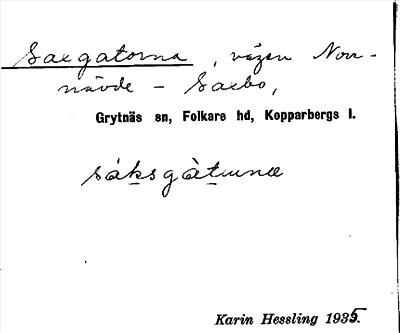 Saxgatorna, vägen Norr-
nävde - Saxbo,
Grytnäs sn, Folkare hd, Kopparbergs l.
sáksgàtuna
Karin Hessling 1935.